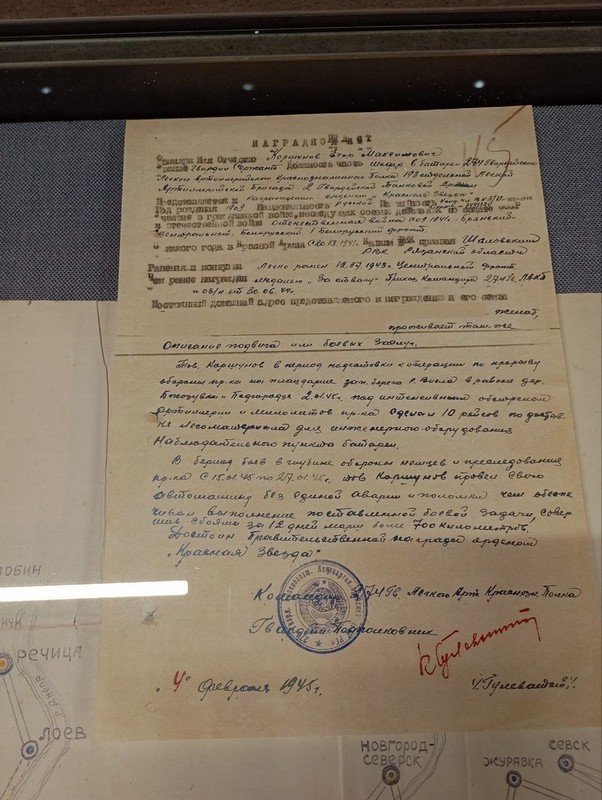 НАГРАДНОЙ ЛИСТ
Фамилия Имя Отчество Коршунов Егор Максимович
звание Гвардии Сержант Должность часть Шофер 6 батареи 274 Гвардейского
Легкого Артиллерийского Краснознаменного Полка 198 отдельной Легкой
Артиллерийской Бригады 2 Гвардейской Танковой Армии
Представляется к Награждению орденом "Красная Звезда"
Год рождения Национальность Русский
участие в гражданской войне, последующих боевых действиях по защите СССР
и отечественной войне Отечественная Война Брянский
Центральный Белорусский 1 Белорусский фронт.
С какого года в Красной Армии Каким РВК призван Шаловским
РВК Рязанской области
Ранения и контузии Легко ранен 12.07.1943г. Центральный фронт
Чем ранее награжден медалью "За отвагу" Приказ командира 274 Гв. ЛАКП
Постоянный домашний адрес представляемого к награждению и его семьи
женат,
проживает там-же
Описание подвига или боевых заслуг.
Тов. Коршунов в период подготовки к операции по прорыву
обороны пр-ка на плацдарме зап. берега р. Висла в районе дер.
2.01.45г. под интенсивным обстрелом
артиллерии и минометов пр-ка сделал 10 рейсов по достав-
ке лесоматериала для инженерного-оборудования
Наблюдательного пункта батареи.
В период боев в глубине обороны немцев и преследования
пр-ка с 15.01.45 по 27.01.45г. тов Коршунов провел свою
автомашину без единой аварии и поломки чем обеспе
чивал выполнение поставленной боевой задачи, совер
шив с боями за 12 дней марш более 700 километров.
Достоин Правительственной награды орденом
"Красная Звезда"
Командир 274 Гв. Легкого Арт. Краснозн. Полка
Гвардии Подполковник
/Гулеватый/.
"4" Февраля 1945г.
РЕЧИЦА
р. Днепр
ЛОЕВ
НОВГОРОД-
СЕВЕРСК
ЖУРАВКА
СЕВСК